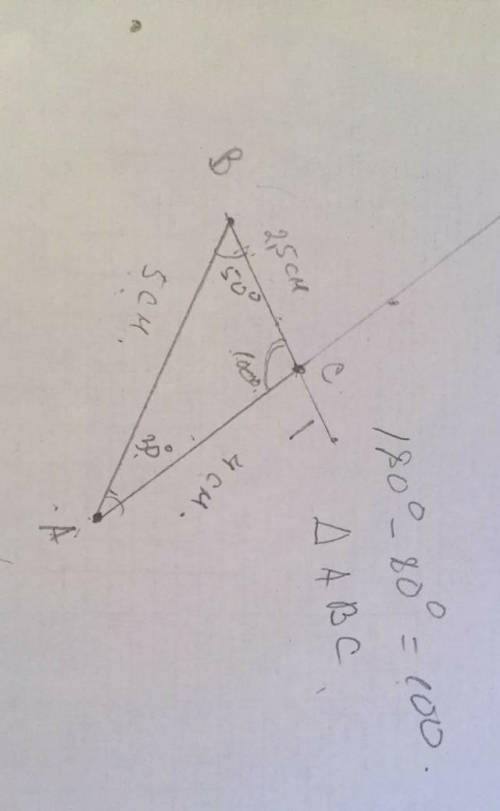 B
2,5 см
50°
5 см.
C
100°.
30°
4 см.
A
180° - 80° = 100.
△ ABC